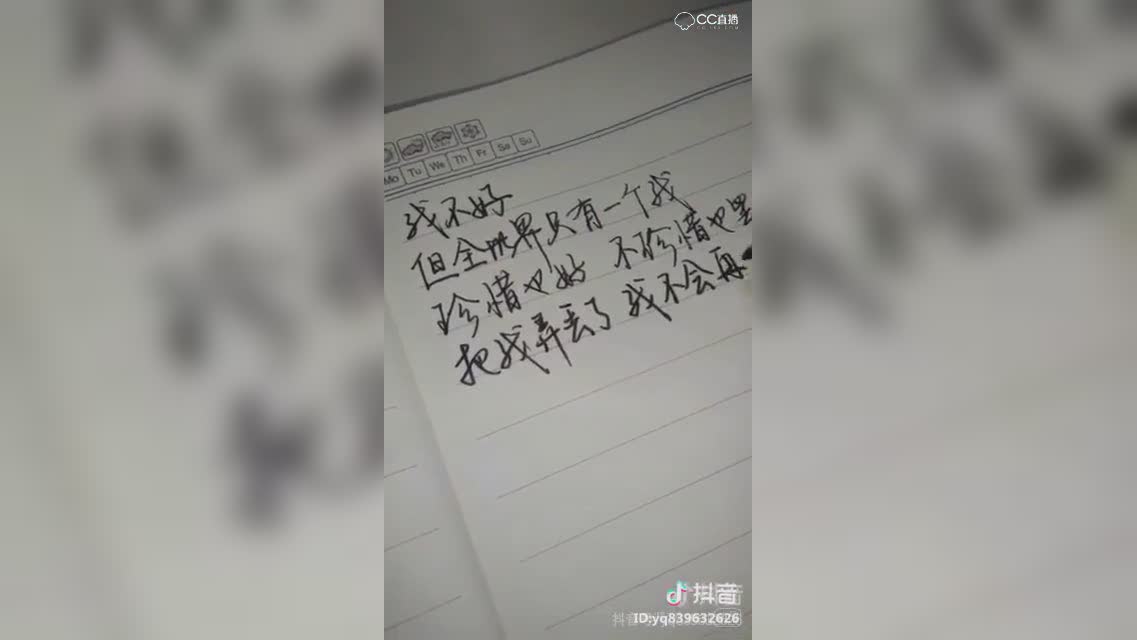 CC直播
Mo Tu We Th Fr Sa Su
我不好
但全世界只有一个我
珍惜也好 不珍惜也罢
把我弄丢了 我不会再
抖音
ID:yq839632626